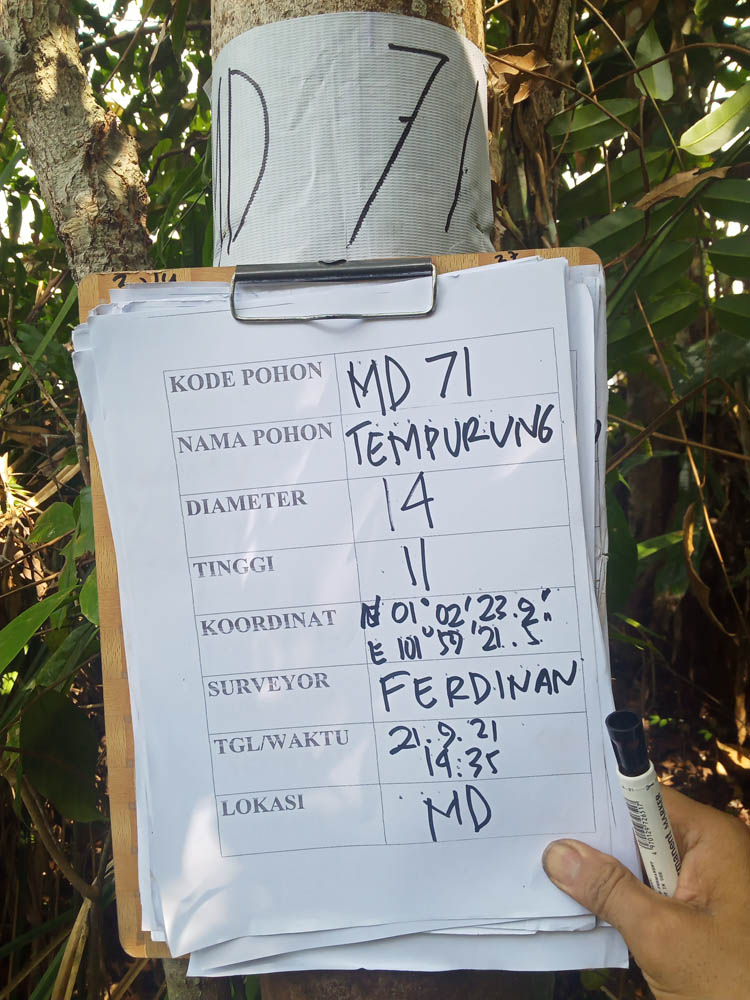 MD 71
KODE POHON MD 71
NAMA POHON TEMPURUNG
DIAMETER 14
TINGGI 11
KOORDINAT N 01° 02' 23.9"
E 101° 59' 21.5"
SURVEYOR FERDINAN
TGL/WAKTU 21.9.21
14:35
LOKASI MD
MARKER